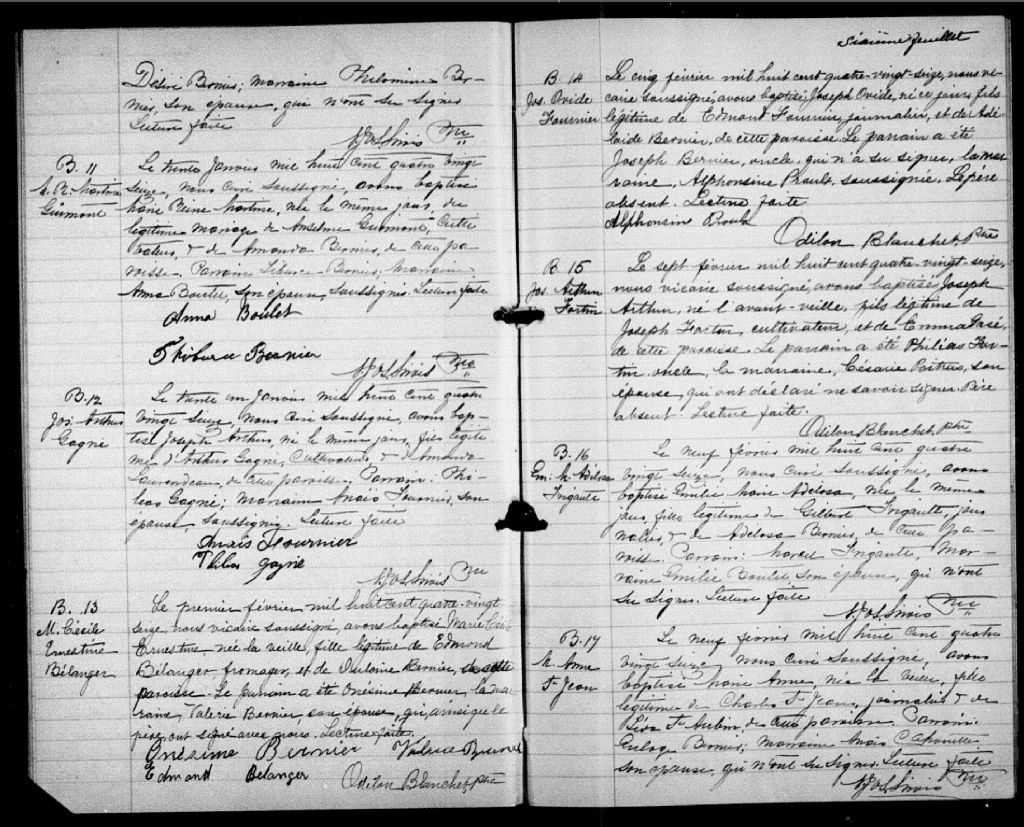 Désiré Bernier; marraine Philomène Ber-
nier, son épouse, qui n'ont su signer
Lecture faite
Ptre
B. 11
M. R. Martine
Guimont
Le trente Janvier mil huit cent quatre vingt
seize, nous curé soussigné, avons baptisé
Marie Reine Martine, née le même jour, du
légitime mariage de Anselme Guimont, culti-
vateur, & de Amanda Bernier, de cette pa-
roisse. Parrain Bernier, Marraine
Anna Boulet, son épouse, soussignés. Lecture faite
Anna Boulet
Bernier
Ptre
B. 12
Jos. Arthur
Gagné
Le trente un Janvier mil huit cent quatre
vingt seize, nous curé soussigné, avons bap-
tisé Joseph Arthur, né le même jour, fils légiti-
me d'Arthur Gagné, cultivateur & de Amanda
Laurendeau, de cette paroisse. Parrain: Phi-
léas Gagné; marraine Anaïs Fournier, son
épouse soussignés. Lecture faite
Anaïs Fournier
Philéas Gagné
Ptre
B. 13
M. Cécile
Ernestine
Bélanger
Le premier février mil huit cent quatre-vingt-
seize, nous vicaire soussigné, avons baptisé Marie Cécile
Ernestine née la veille, fille légitime de Edmond
Bélanger fromager, et de Bernier, de cette
paroisse. Le parrain a été Onésime Bernier, la mar-
raine, Valérie Bernier son épouse, qui, ainsi que le
père, ont signé avec nous. Lecture faite.
Onésime Bernier Valérie Bernier
Edmond Bélanger
Odilon Blanchet, ptre
Sixième feuillet
B. 14
Jos. Ovide
Fournier
Le cinq février mil huit cent quatre-vingt-seize, nous vi-
caire soussigné, avons baptisé Joseph Ovide, né ce jour, fils
légitime de Edmond Fournier, journalier, et de Adé-
laïde Bernier, de cette paroisse. Le parrain a été
Joseph Bernier, oncle, qui n'a su signer, la mar-
raine, Alphonsine Proulx, soussignée. Le père
absent. Lecture faite.
Alphonsine Proulx
Odilon Blanchet, Ptre
B. 15
Jos. Arthur
Fortin
Le sept février mil huit cent quatre-vingt-seize,
nous vicaire soussigné, avons baptisé Joseph
Arthur, né l'avant-veille, fils légitime de
Joseph Fortin, cultivateur, et de Emma
de cette paroisse. Le parrain a été Philias For-
tin, oncle, la marraine, Césarie Poitras, son
épouse, qui ont déclaré ne savoir signer. Père
absent. Lecture faite.
Odilon Blanchet, ptre
B. 16
Em. M. Adelosa
Fregault
Le neuf février mil huit cent quatre
vingt seize, nous curé soussigné, avons
baptisé Emilie Marie Adelosa, née le même
jour, fille légitime de Gilbert Fregault, jour-
nalier, & de Adelosa Bernier, de cette pa-
roisse. Parrain: Marcel Fregault, Mar-
raine Emilie Boulet son épouse, qui n'ont
su signer. Lecture faite
Ptre
B. 17
M. Anne
St Jean
Le neuf février mil huit cent quatre
vingt seize, nous curé soussigné, avons
baptisé Marie Anne, née la veille, fille
légitime de Charles St Jean, journalier & de
St Aubin, de cette paroisse. Parrain:
Bernier; Marraine Anaïs
son épouse, qui n'ont su signer. Lecture faite
Ptre